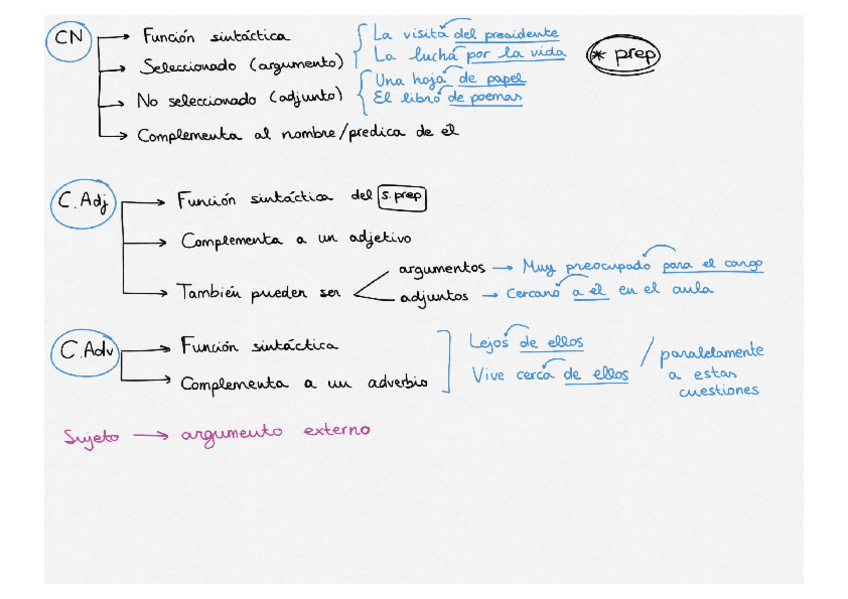 CN
Función sintáctica
Seleccionado (argumento)
No seleccionado (adjunto)
Complementa al nombre/predica de él
La visita del presidente
La lucha por la vida
Una hoja de papel
El libro de poemas
* prep
C.Adj
Función sintáctica del s.prep
Complementa a un adjetivo
También pueden ser
argumentos → Muy preocupado para el cargo
adjuntos → Cercano a él en el aula
C.Adv
Función sintáctica
Complementa a un adverbio
Lejos de ellos
Vive cerca de ellos
/ paralelamente
a estas
cuestiones
Sujeto → argumento externo